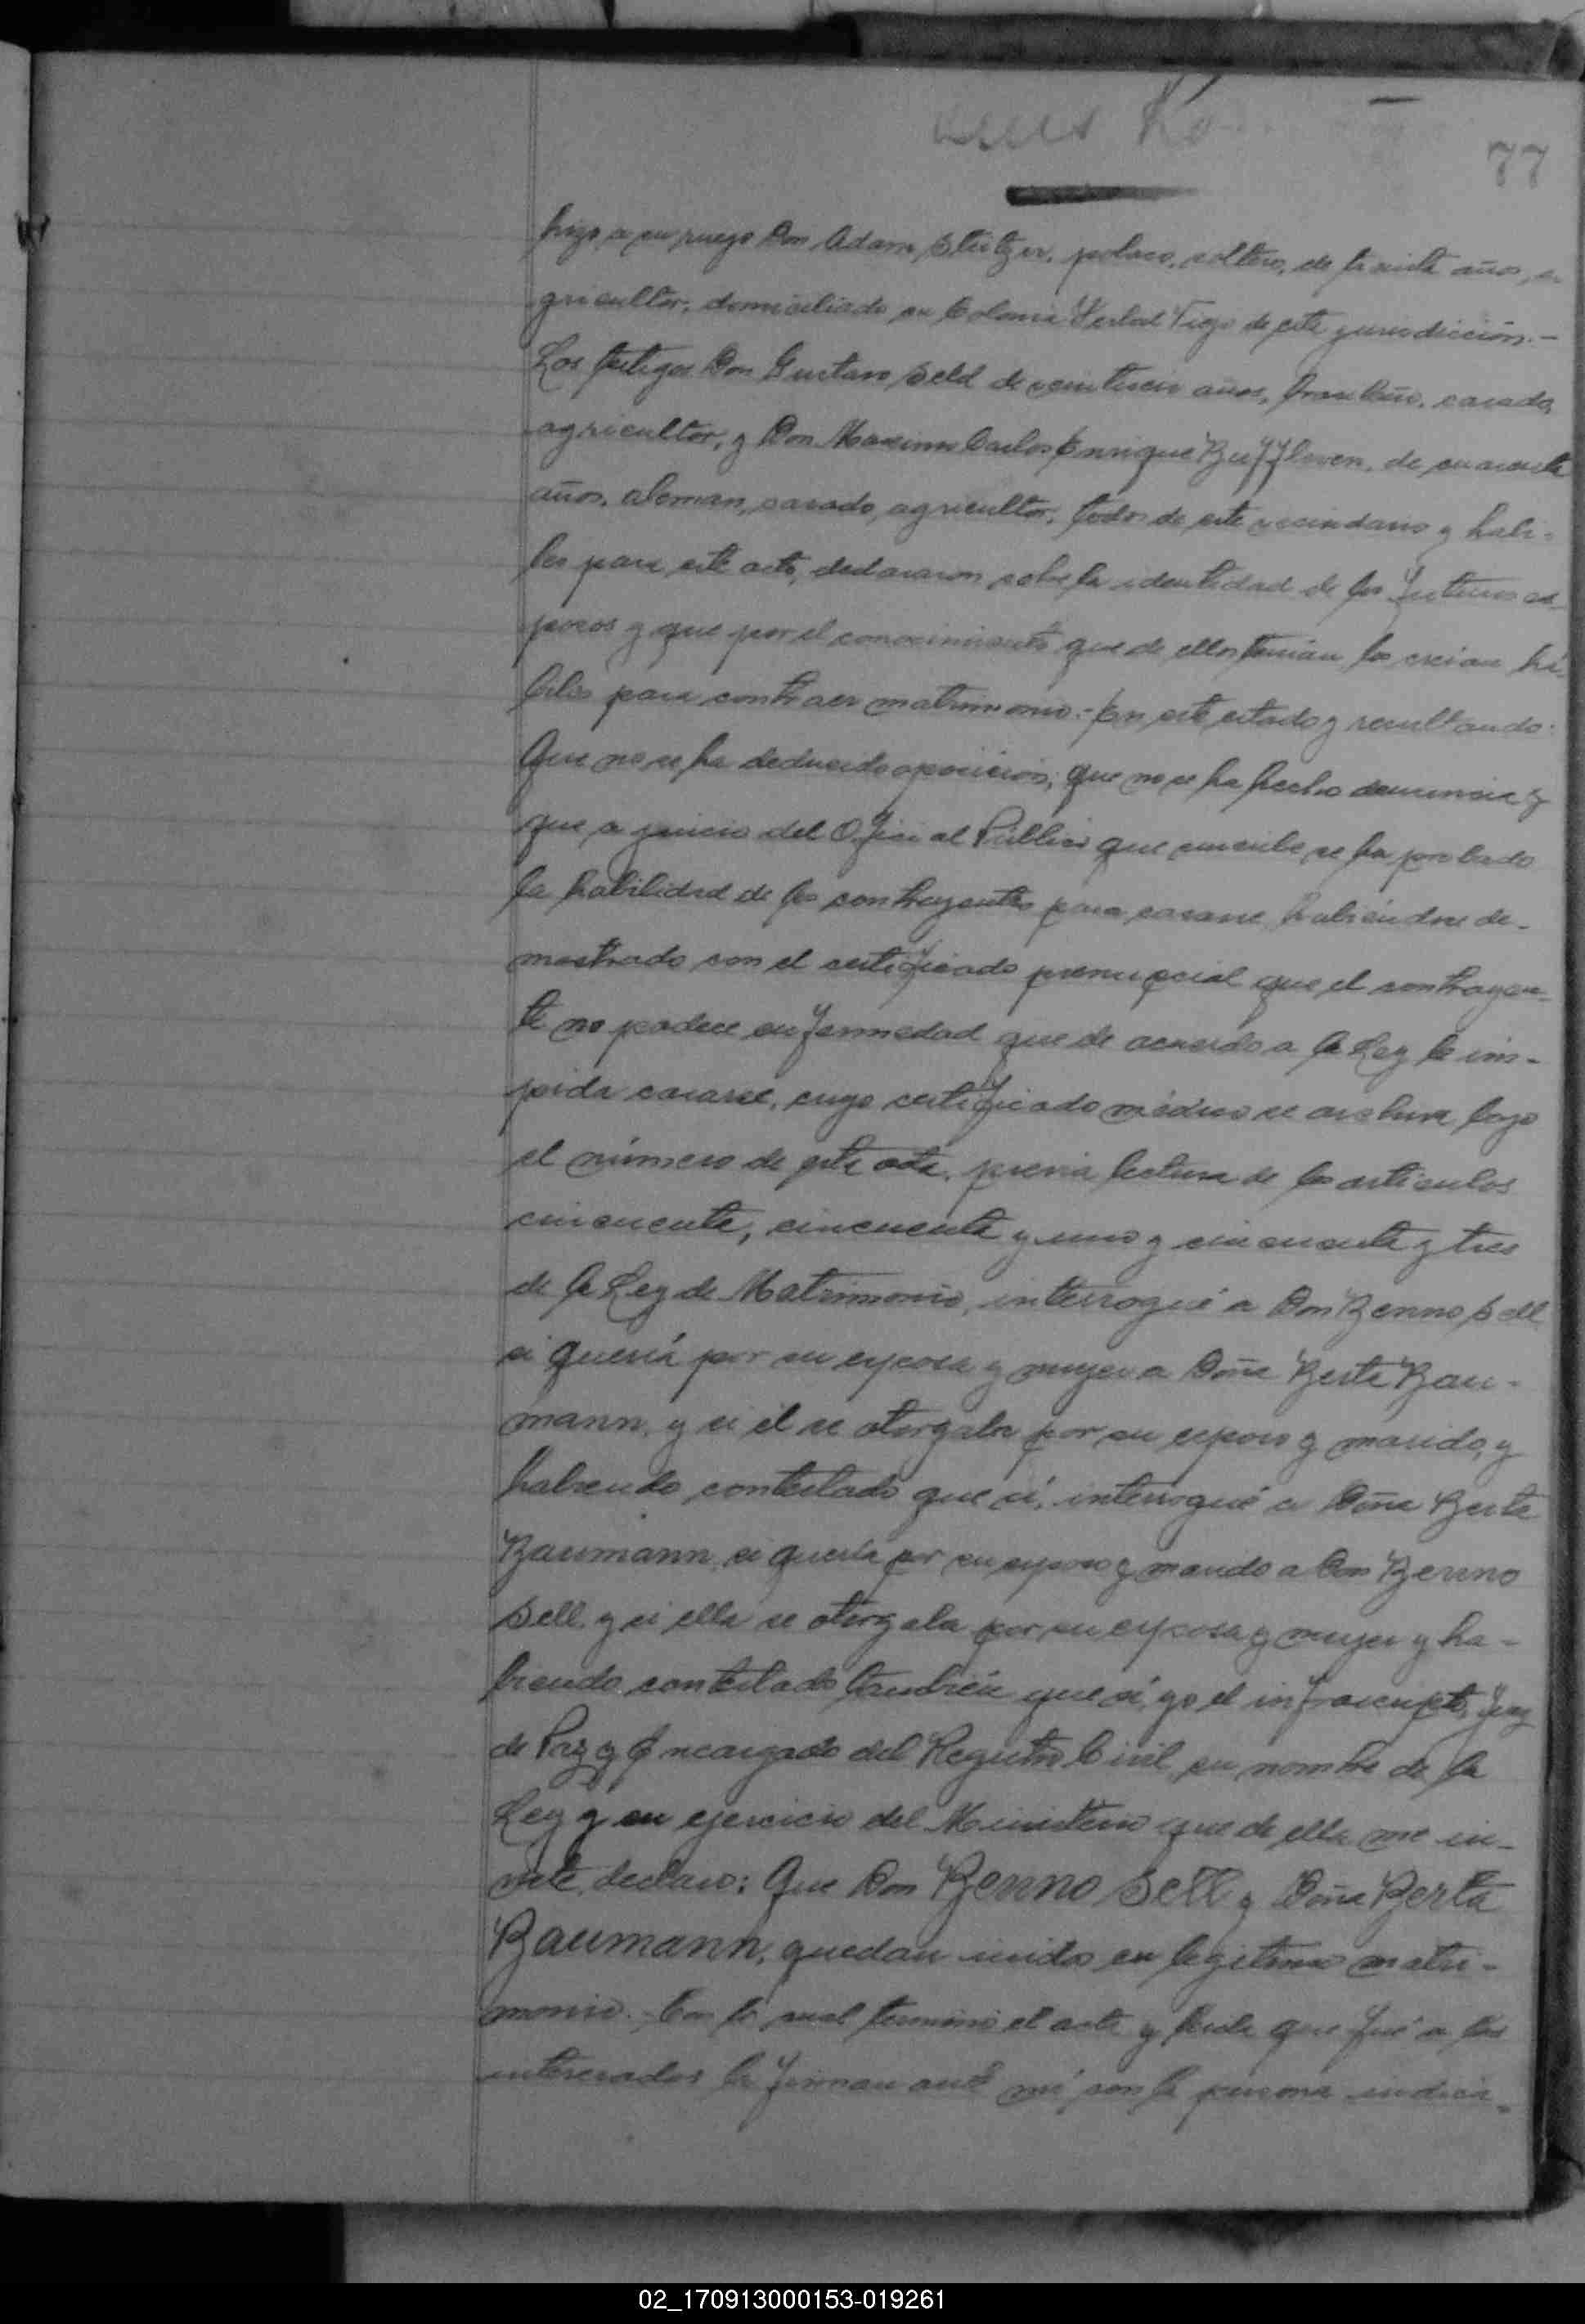 77
hizo a su ruego Don Adam Stietzer, polaco, soltero, de treinta años, a-
gricultor, domiciliado en Colonia Yerbal Viejo de esta jurisdicción.-
Los testigos Don Gustavo Seld de veintiseis años, brasileño, casado,
agricultor, y Don Maximo Carlos Enrique Buffleven, de cuarenta
años, aleman, casado, agricultor, todos de este vecindario y habi-
les para este acto, declararon sobre la identidad de los futuros es-
posos y que por el conocimiento que de ellos tenian los creian há-
biles para contraer matrimonio.- En este estado y resultando:
Que no se ha deducido oposición; que no se ha hecho denuncia y
que a juicio del Oficial Público que suscribe se ha probado
la habilidad de los contrayentes para casarse habiéndose de-
mostrado con el certificado prenupcial que el contrayen-
te no padece enfermedad que de acuerdo a la Ley le im-
pida casarse, cuyo certificado médico se archiva bajo
el número de esta acta, previa lectura de los articulos
cincuenta, cincuenta y uno y cincuenta y tres
de la Ley de Matrimonio, interrogué a Don Benno Sell
si quería por su esposa y mujer a Doña Berta Bau-
mann, y si él se otorgaba por su esposo y marido, y
habiendo contestado que sí, interrogué a Doña Berta
Baumann, si quería por su esposo y marido a Don Benno
Sell y si ella se otorgaba por su esposa y mujer y ha-
biendo contestado también que sí, yo el infrascripto, Juez
de Paz y Encargado del Registro Civil, en nombre de la
Ley y en ejercicio del Ministerio que de ella me in-
viste, declaro: Que Don Benno Sell y Doña Berta
Baumann, quedan unidos en legitimo matri-
monio.- Con lo cual terminó el acta y leida que fué a los
interesados la firman ante mí, con la persona indica-
02_170913000153-019261